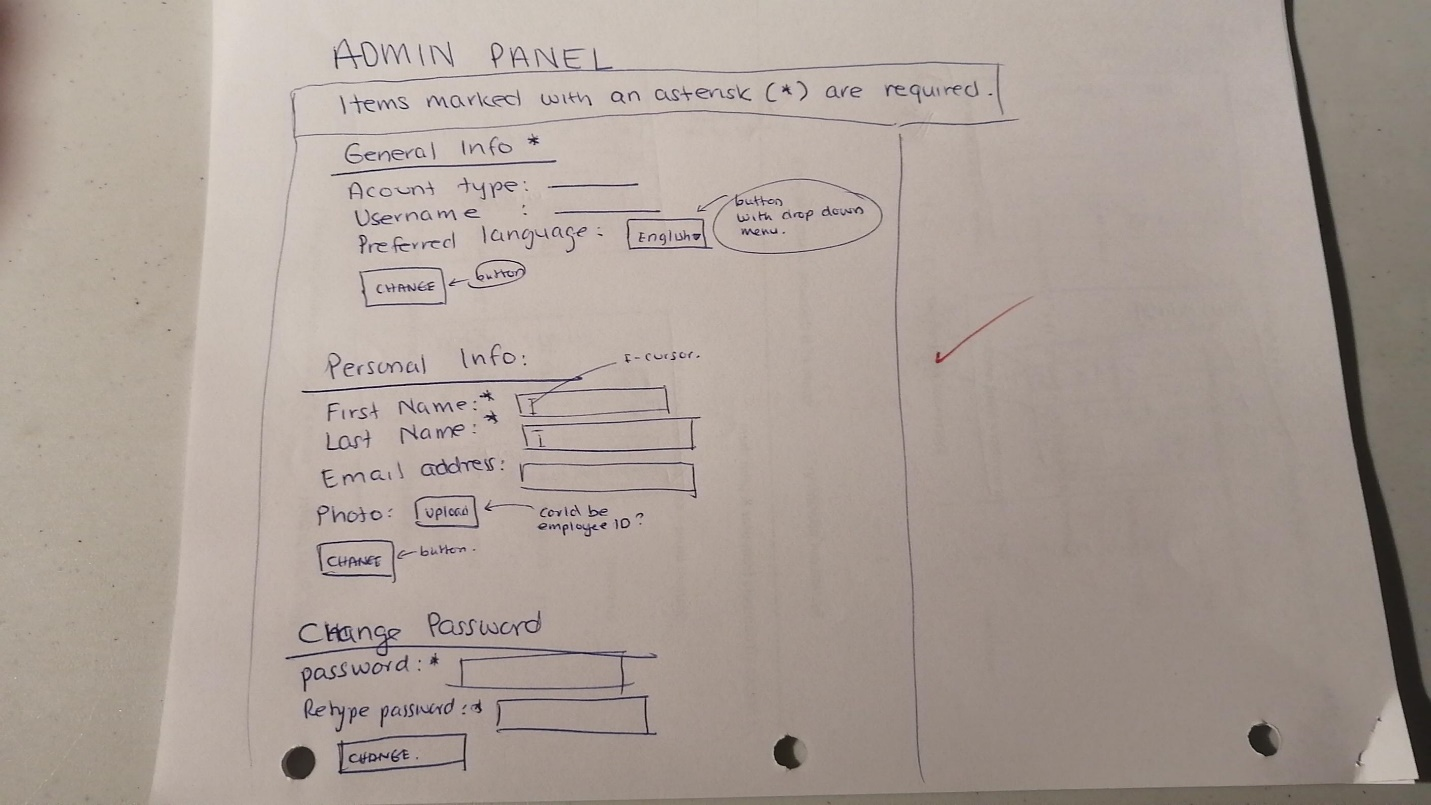 ADMIN PANEL
Items marked with an asterisk (*) are required.
General Info *
Acount type:
Username :
Preferred language: English
button
with drop down
menu.
CHANGE button
Personal Info:
I-cursor.
First Name:*
Last Name:*
Email address:
Photo: upload
could be
employee ID?
CHANGE button.
Change Password
password:*
Retype password:*
CHANGE.